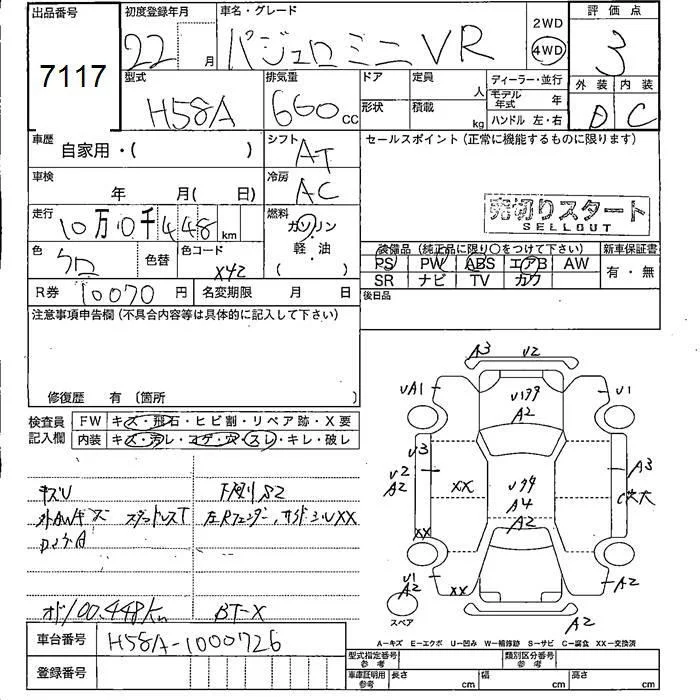 出品番号 初度登録年月 車名・グレード 2WD 評価点
7117 22 月 パジェロミニ VR 4WD 3
型式 排気量 ドア 定員 人 ディーラー・並行 外装 内装
H58A 660 cc 形状 積載 kg モデル年式 年 D C
ハンドル 左・右
車歴 シフト セールスポイント (正常に機能するものに限ります)
自家用・( ) AT
車検 年 月( 日) 冷房 AC
売切りスタート
SELLOUT
走行 10万0千448 km 燃料 ガソリン
軽・油
( )
色 色替 色コード X42
装備品 (純正品に限り○をつけて下さい) 新車保証書
PS PW ABS エアB AW 有・無
SR ナビ TV カワ
R券 10070 円 名変期限 月 日 後日品
注意事項申告欄 (不具合内容等は具体的に記入して下さい)
修復歴 有 〔箇所 〕
検査員 FW キズ・飛石・ヒビ割・リペア跡・X要
記入欄 内装 キズ・汚レ・コゲ・穴・スレ・キレ・破レ
A3 U2
UA1 U1
A2
U3
U2 XX A3
A2 A4
A2
XX
U1 XX A2
A2
スペア A2
キズU 下廻りS2
外AWキズ スタッドレスT XX
オド100,448km BT-X
A−キズ E−エクボ U−凹み W−補修跡 S−サビ C−腐食 XX−交換済
車台番号 H58A-1000726
型式指定番号 参考 類別区分番号 参考
登録番号 車庫証明用 参考 長さ cm 幅 cm 高さ cm